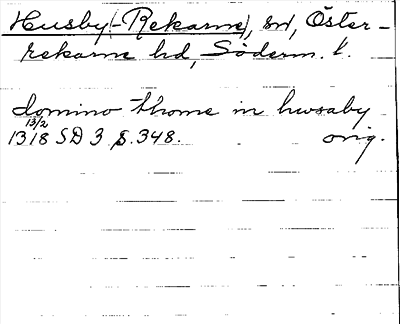 Husby (-Rekarne), sn, Öster-
rekarne hd, Söderm. l.
domino thome in hwsaby
13/2
1318 SD 3 s. 348. orig.